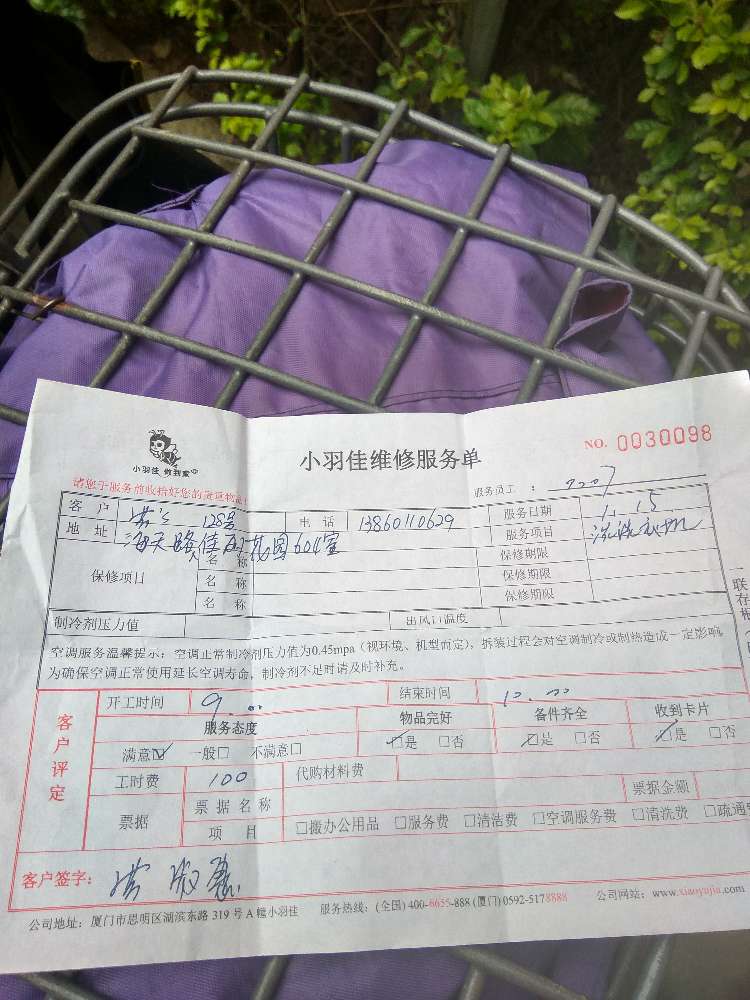 小羽佳 做到家
小羽佳维修服务单
NO. 0030098
请您于服务前收拾好您的贵重物品
服务员工:
客户 128号 电话 13860110629 服务日期 1.15
地址 海天路佳 花园604室 服务项目 洗
保修项目 名称 保修期限
名称 保修期限
名称 保修期限
制冷剂压力值 出风口温度
空调服务温馨提示:空调正常制冷剂压力值为0.45mpa(视环境、机型而定),拆装过程会对空调制冷或制热造成一定影响
为确保空调正常使用延长空调寿命,制冷剂不足时请及时补充。
客户评定
开工时间 9.00 结束时间 10.00
服务态度 物品完好 备件齐全 收到卡片
满意☑ 一般□ 不满意□ ☑是 □否 ☑是 □否 ☑是 □否
工时费 100 代购材料费
票据 票据名称 票据金额
项目 □搬办公用品 □服务费 □清洁费 □空调服务费 □清洗费 □疏通
客户签字:
公司地址:厦门市思明区湖滨东路319号A幢小羽佳 服务热线:(全国)400-6655-888 (厦门)0592-5178888 公司网站:www.xiaoyujia.com
一联存根